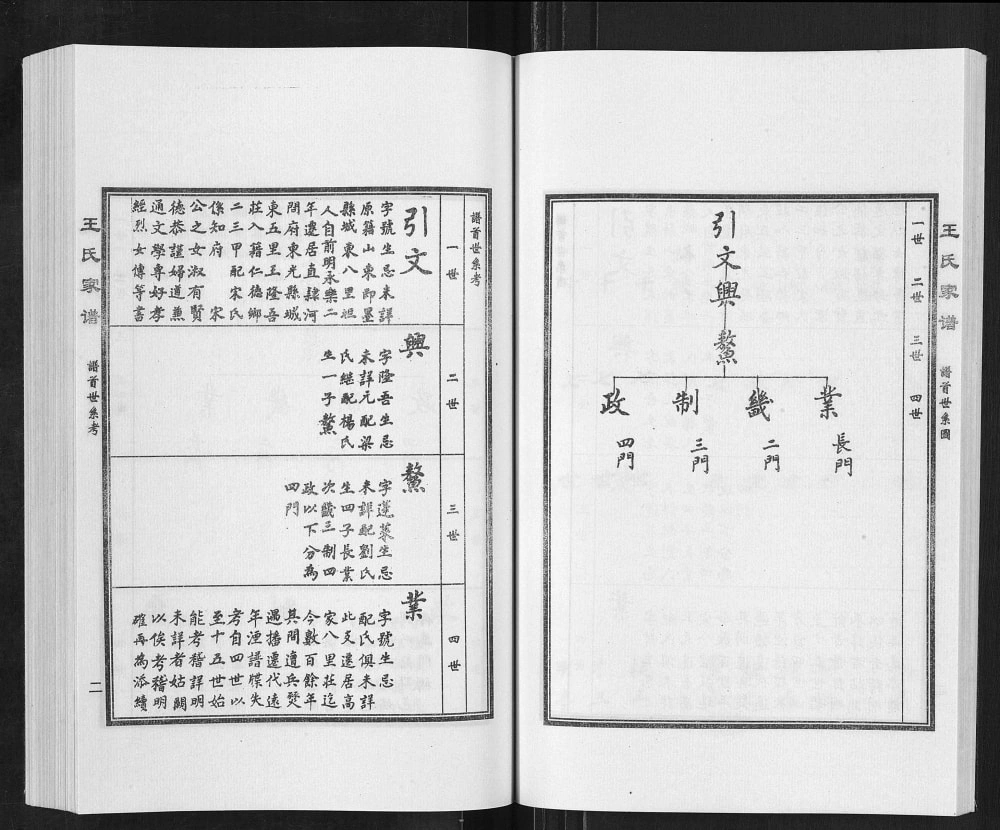 王氏家谱
譜首世系圖
一世
二世
三世
四世
引文
興
鰲
業
長門
畿
二門
制
三門
政
四門
譜首世系考
一世
引文
字號生忌未詳
原籍山東即墨
縣城東八里祖
人自前明永樂二
年遷居直隸河
間府東光縣城
東五里王隆吾
莊入籍仁德鄉
二三甲配宋氏
係知府宋
公之女淑有賢
德恭謹婦道兼
通文學專好孝
經烈女傳等書
二世
興
字隆吾生忌
未詳元配梁
氏繼配楊氏
生一子鰲
三世
鰲
字蓬萊生忌
未詳配劉氏
生四子長業
次畿三制四
政以下分為
四門
四世
業
字號生忌
配氏俱未詳
此支遷居高
家八里莊迄
今數百餘年
其間遺兵燹
過播遷代遠
年湮譜牒失
考自四世以
至十五世始
能考稽詳明
未詳者姑闕
以俟考稽明
確再為添續
王氏家谱
譜首世系考
二